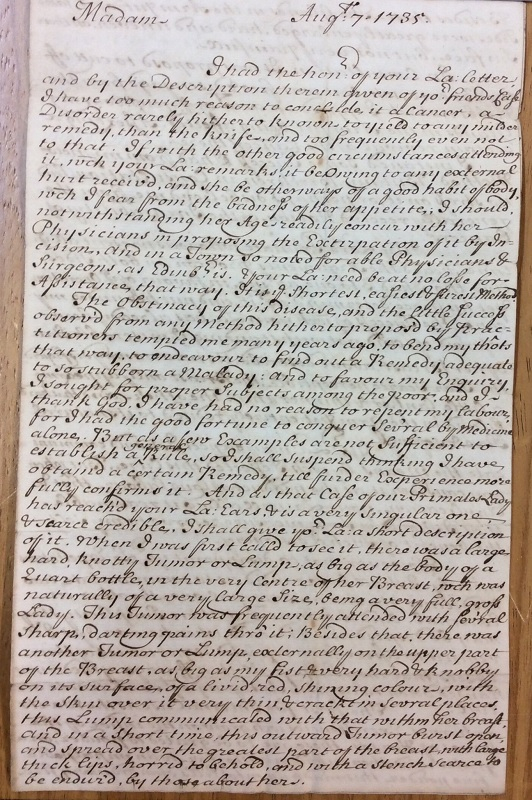 Madam Augst. 7. 1735
I had the honr. of your La: letter
and by the Description therein given of yor. friends Case
I have too much reason to conclude it a Cancer, a
Disorder rarely hitherto known to yield to any milder
remedy, than the knife, and too frequently even not
to that. If with the other good circumstances attending
it, wch your La: remarks, it be Owing to any external
hurt receiv'd, and she be otherways of a good habit of body,
wch I fear from the badness of her appetite, I should,
notwithstanding her Age readily concur with her
Physicians in proposing the Extirpation of it by In-
cision, and in a Town so noted for able Physicians &
Surgeons, as Edinbr. is. & your La: need be at no losse for
Assistance, that way. It is ye Shortest, easiest & surest Method.
The Obstinacy of this disease, and the little Success
observ'd from any Method hitherto propos'd by Prac-
titioners tempted me many years ago, to bend my thôts
that way, to endeavour to find out a Remedy adequate
to so stubborn a Malady: and to favour my Enquiry,
I sought for proper Subjects among the poor: and I
thank God, I have had no reason to repent my labour,
for I had the good fortune to conquer Sevral by Medicine
alone. But as a few Examples are not Sufficient to
establish a Rule, so I shall suspend thinking I have
obtain'd a certain Remedy, till furder Experience more
fully confirms it. And as that Case of our Primates Lady
has reach'd your La: Ears, & is a very Singular one
& scarce credible, I shall give yor. La: a short description
of it. & When I was first calld to see it, there was a large
hard, knotty Tumor or Lump, as big as the body of a
Quart bottle, in the very Centre of her Breast, wch was
naturally of a very large Size, being a very full, gross
Lady. This Tumor was frequently attended with sevral
sharp, darting pains thrô it; Besides that, there was
another Tumor or Lump, externally on the upper part
of the Breast, as big as my fist & very hard & knobby
on its surface, of a livid, red, shining colour, with
the Skin over it very thin & crackt in sevral places,
this Lump communicated with that within her breast,
and in a short time, this outward Tumor burst open,
and spread over the greatest part of the breast, with large
thick lips, horrid to behold, and with a stench scarce to
be endur'd, by those about her.